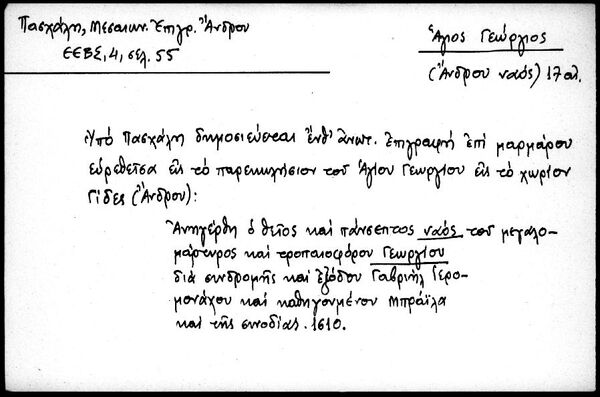 Πασχάλη, Μεσαιων. Ἐπιγρ. Ἄνδρου
ΕΕΒΣ, 4, σελ. 55
Ἅγιος Γεώργιος
(Ἄνδρου ναός) 17 αἰ.
Ὑπό Πασχάλη δημοσιεύεται ἔνθ' ἄνωτ. Ἐπιγραφή ἐπί μαρμάρου
εὑρεθεῖσα εἰς τό παρεκκλήσιον τοῦ Ἁγίου Γεωργίου εἰς τό χωρίον
Γίδες (Ἄνδρου):
Ἀνηγέρθη ὁ θεῖος καί πάνσεπτος ναός τοῦ μεγαλο-
μάρτυρος καί τροπαιοφόρου Γεωργίου
διά συνδρομῆς καί ἐξόδου Γαβριήλ Ἱερο-
μονάχου καί καθηγουμένου Μπραΐλα
καί τῆς συνοδίας. 1610.